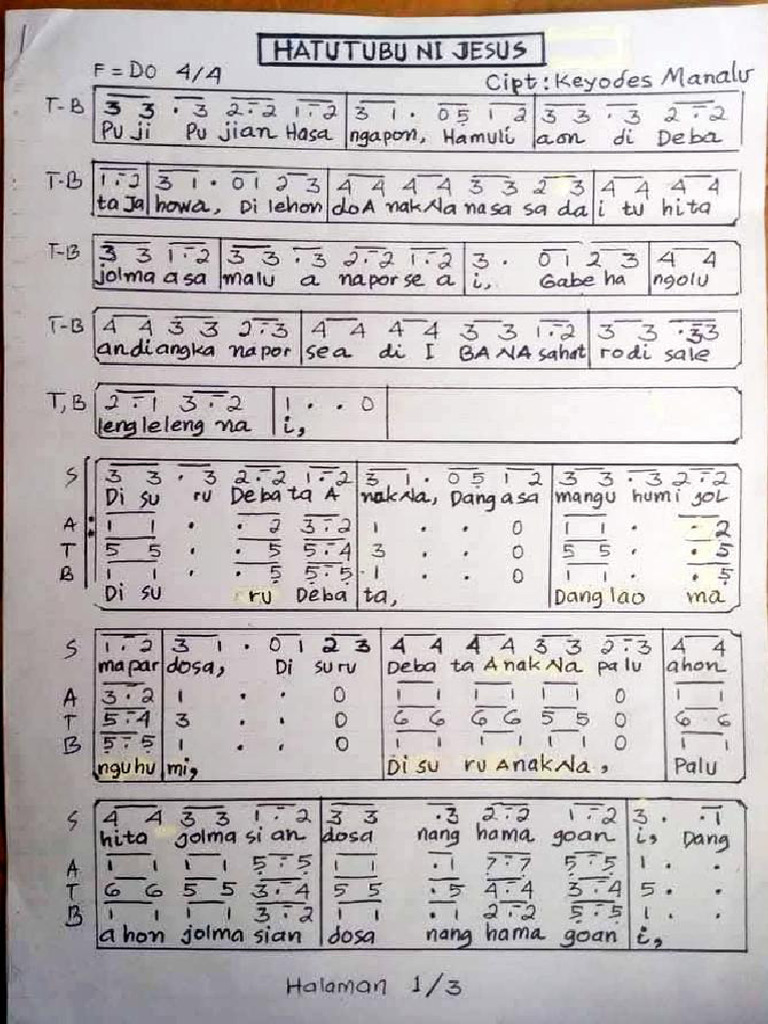 HATUTUBU NI JESUS
F = DO 4/4
Cipt : Keyodes Manalu
T-B 3 3 . 3 2 . 2 1 . 2 | 3 1 . 0 5 1 2 | 3 3 . 3 2 . 2
Pu ji Pu jian Hasa ngapon, Hamuli aon di Deba
T-B 1 . 2 | 3 1 . 0 1 2 3 | 4 4 4 4 3 3 2 3 | 4 4 4 4
ta Ja howa, Di lehon do A nak Na nasa sa da i tu hita
T-B 3 3 1 . 2 | 3 3 . 3 2 . 2 1 . 2 | 3 . 0 1 2 3 | 4 4
jolma asa malu a napor se a i, Gabe ha ngolu
T-B 4 4 3 3 2 . 3 | 4 4 4 4 3 3 1 . 2 | 3 3 . 3 3
andiangka na por sea di I BANA sahat rodi sale
T,B 2 . 1 3 . 2 | 1 . . 0
lengleleng na i,
S 3 3 . 3 2 . 2 1 . 2 | 3 1 . 0 5 1 2 | 3 3 . 3 2 . 2
Di su ru Deba ta A nak Na, Dang asa mangu humi jol
A 1 1 . . 2 3 . 2 | 1 . . 0 | 1 1 . . 2
T 5 5 . . 5 5 . 4 | 3 . . 0 | 5 5 . . 5
B 1 1 . . 5 5 . 5 | 1 . . 0 | 1 1 . . 5
Di su ru Deba ta, Dang lao ma
S 1 . 2 | 3 1 . 0 1 2 3 | 4 4 4 4 3 3 2 . 3 | 4 4
ma par dosa, Di suru Deba ta Anak Na palu ahon
A 3 . 2 | 1 . . 0 | 1 1 1 1 1 1 0 | 1 1
T 5 . 4 | 3 . . 0 | 6 6 6 6 5 5 0 | 6 6
B 5 . 5 | 1 . . 0 | 1 1 1 1 1 1 0 | 1 1
nguhu mi, Di su ru Anak Na, Palu
S 4 4 3 3 1 . 2 | 3 3 . 3 2 . 2 1 . 2 | 3 . . 1
hita jolma si an dosa nang hama goan i, Dang
A 1 1 1 1 5 . 5 | 1 1 . 1 7 . 7 5 . 5 | 1 . .
T 6 6 5 5 3 . 4 | 5 5 . 5 4 . 4 3 . 4 | 5 . .
B 1 1 1 1 3 . 2 | 1 1 . 1 2 . 2 5 . 5 | 1 . .
a hon jolma sian dosa nang hama goan i,
Halaman 1/3